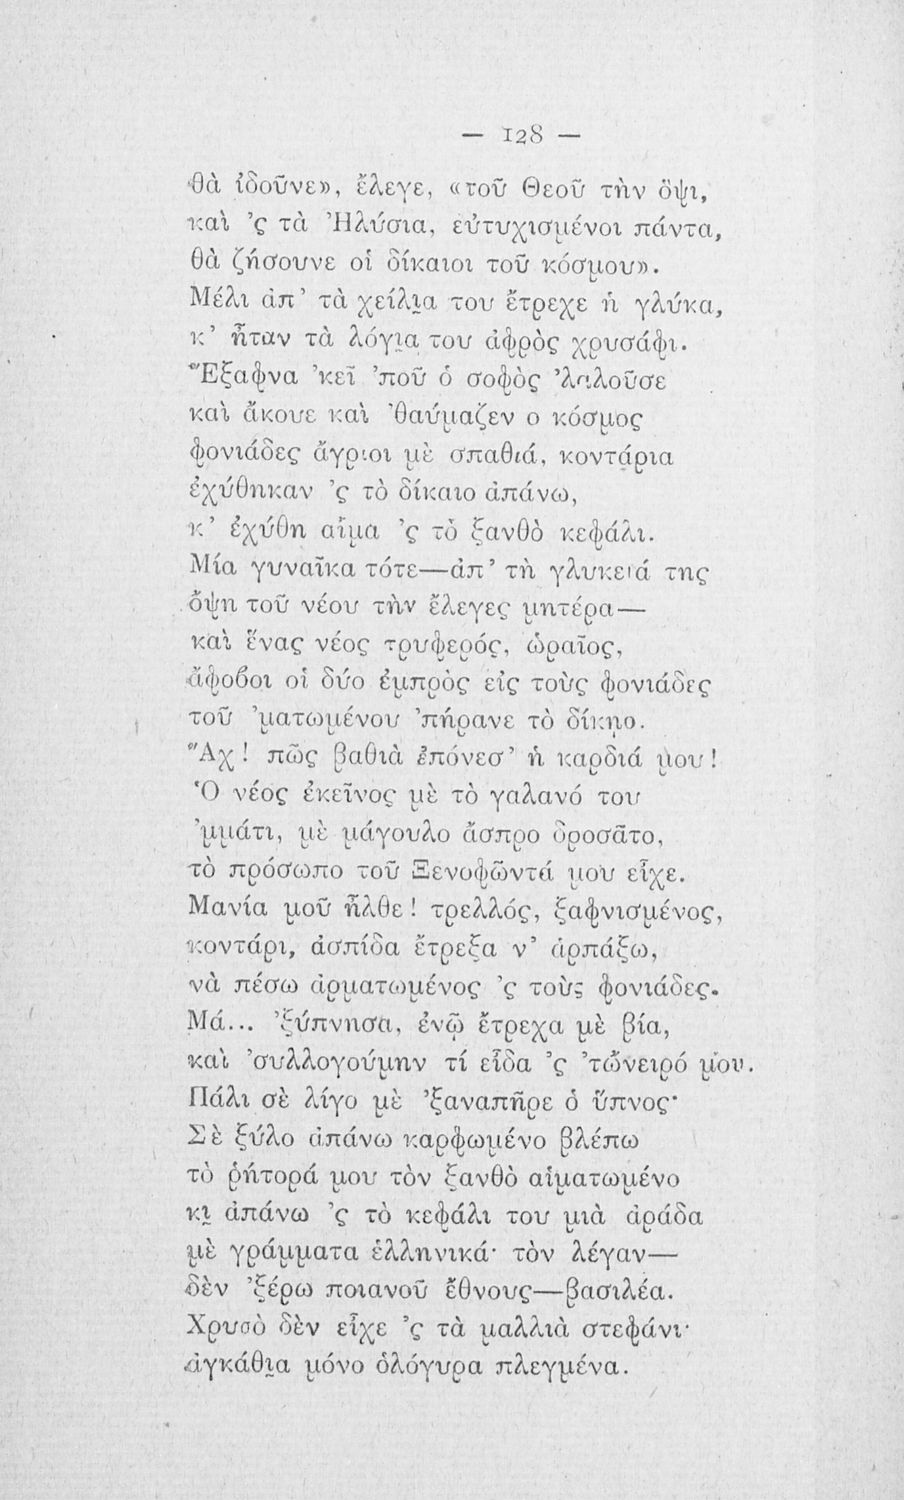 — 128 —
θὰ ἰδοῦνε», ἔλεγε, «τοῦ Θεοῦ τὴν ὄψι,
καὶ 'ς τὰ Ἠλύσια, εὐτυχισμένοι πάντα,
θὰ ζήσουνε οἱ δίκαιοι τοῦ κόσμου».
Μέλι ἀπ' τὰ χείλι̯α του ἔτρεχε ἡ γλύκα,
κ' ἦταν τὰ λόγι̯α του ἀφρὸς χρυσάφι.
Ἔξαφνα 'κεῖ 'ποῦ ὁ σοφὸς 'λαλοῦσε
καὶ ἄκουε καὶ 'θαύμαζεν ο κόσμος
φονιάδες ἄγριοι μὲ σπαθιά, κοντάρια
ἐχύθηκαν 'ς τὸ δίκαιο ἀπάνω,
κ' ἐχύθη αἷμα 'ς τὸ ξανθὸ κεφάλι.
Μία γυναῖκα τότε—ἀπ' τὴ γλυκειά της
ὄψη τοῦ νέου τὴν ἔλεγες μητέρα—
καὶ ἕνας νέος τρυφερός, ὡραῖος,
ἄφοβοι οἱ δύο ἐμπρὸς εἰς τοὺς φονιάδες
τοῦ 'ματωμένου 'πήρανε τὸ δίκηο.
Ἄχ! πῶς βαθιὰ ἐπόνεσ' ἡ καρδιά μου!
Ὁ νέος ἐκεῖνος μὲ τὸ γαλανό του
'μμάτι, μὲ μάγουλο ἄσπρο δροσᾶτο,
τὸ πρόσωπο τοῦ Ξενοφῶντά μου εἶχε.
Μανία μοῦ ἦλθε! τρελλός, ξαφνισμένος,
κοντάρι, ἀσπίδα ἔτρεξα ν' ἁρπάξω,
νὰ πέσω ἁρματωμένος 'ς τοὺς φονιάδες.
Μά... 'ξύπνησα, ἐνῷ ἔτρεχα μὲ βία,
καὶ 'συλλογούμην τί εἶδα 'ς 'τὤνειρό μου.
Πάλι σὲ λίγο μὲ 'ξαναπῆρε ὁ ὕπνος·
Σὲ ξύλο ἀπάνω καρφωμένο βλέπω
τὸ ῥήτορά μου τὸν ξανθὸ αἱματωμένο
κι̯ ἀπάνω 'ς τὸ κεφάλι του μιὰ ἀράδα
μὲ γράμματα ἑλληνικά· τὸν λέγαν—
δὲν 'ξέρω ποιανοῦ ἔθνους—βασιλέα.
Χρυσὸ δὲν εἶχε 'ς τὰ μαλλιὰ στεφάνι·
ἀγκάθι̯α μόνο ὁλόγυρα πλεγμένα.